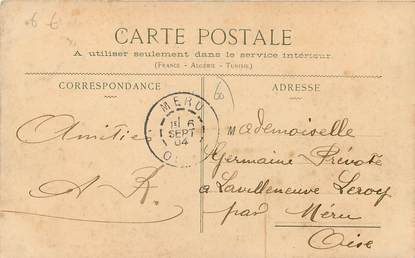 CARTE POSTALE
A utiliser seulement dans le service intérieur.
(FRANCE - ALGÉRIE - TUNISIE)
CORRESPONDANCE
ADRESSE
MERU
6
SEPT
04
Amitié
A R.
Mademoiselle
Germaine Prévote
a Lavilleneuve Leroy
par Méru
Oise